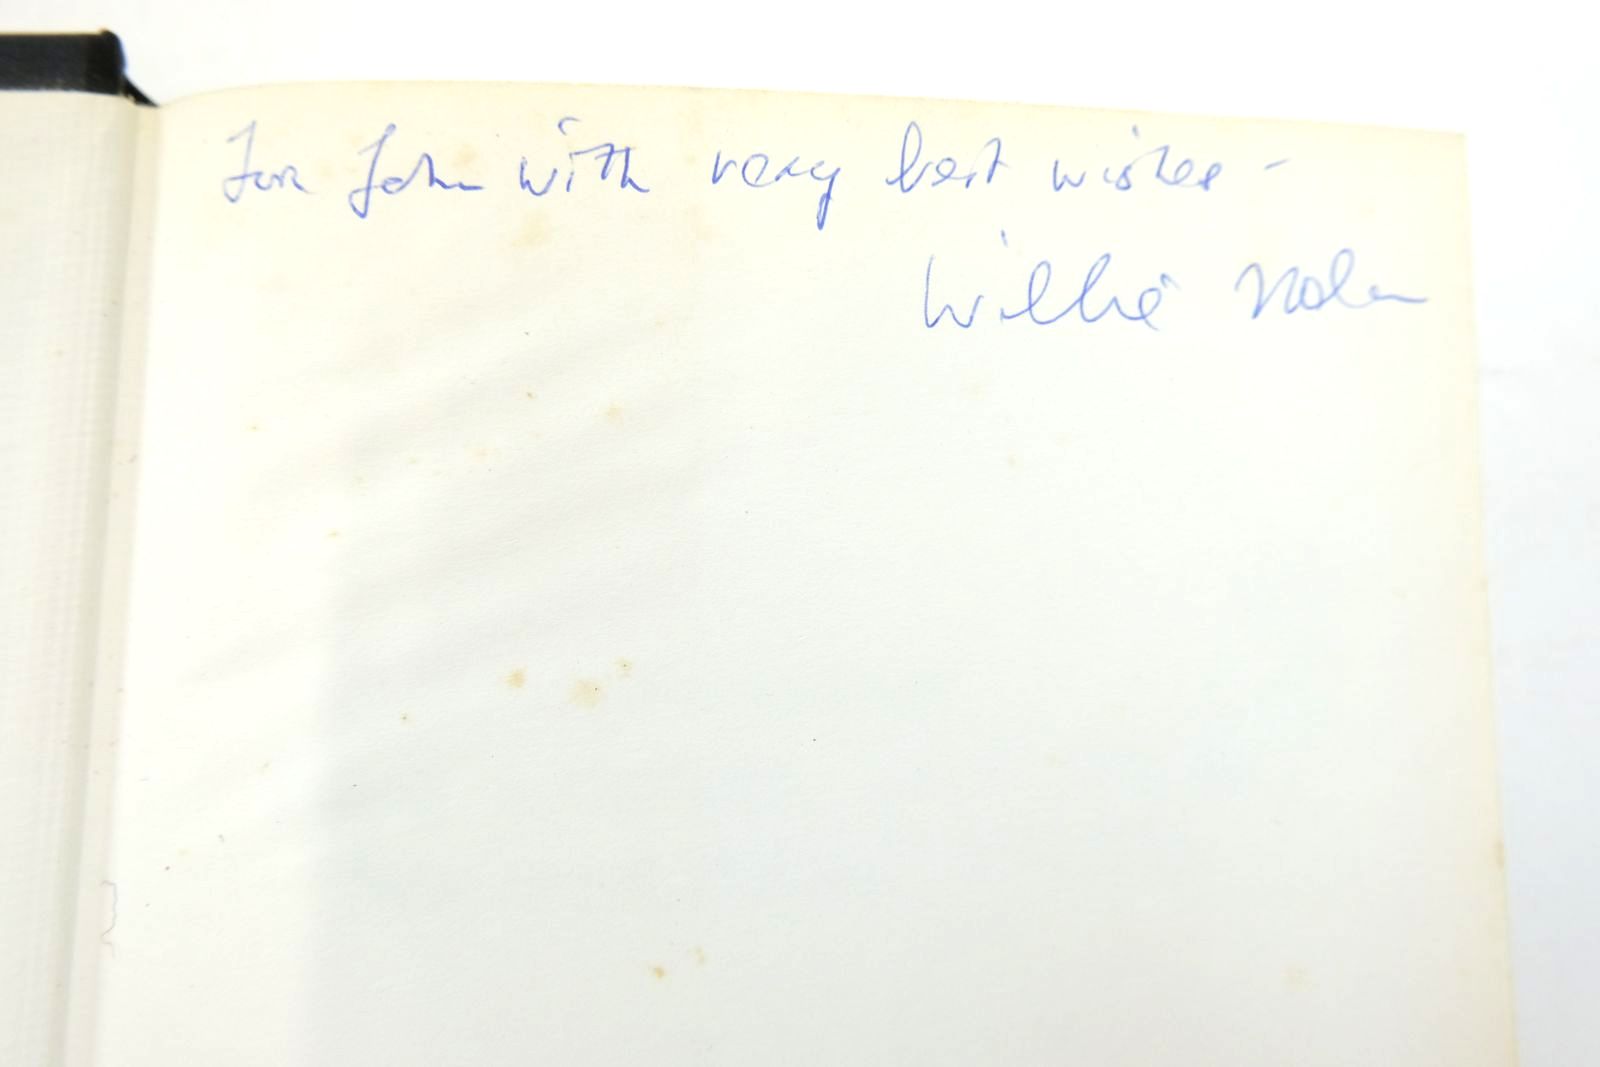 For John with very best wishes -
Willie Nolan